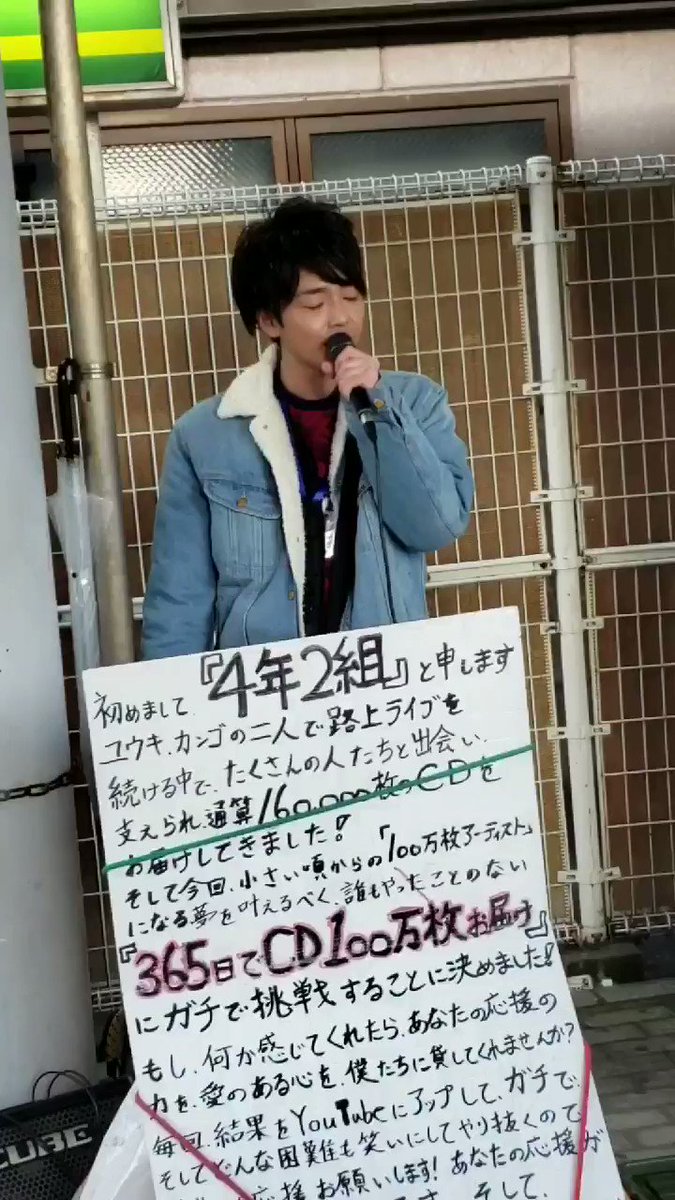 初めまして『4年2組』と申します
ユウキ、カンゴの二人で路上ライブを
続ける中で、たくさんの人たちと出会い、
支えられ、通算160,000枚のCDを
お届けしてきました!
そして今回、小さい頃からの「100万枚アーティスト」
になる夢を叶えるべく、誰もやったことのない
『365日でCD100万枚お届け』
にガチで挑戦することに決めました!
もし、何か感じてくれたら、あなたの応援の
力を、愛のある心を、僕たちに貸してくれませんか?
毎回、結果をYouTubeにアップして、ガチで、
そしてどんな困難も笑いにしてやり抜くので
応援お願いします! あなたの応援が
す。そして
CUBE